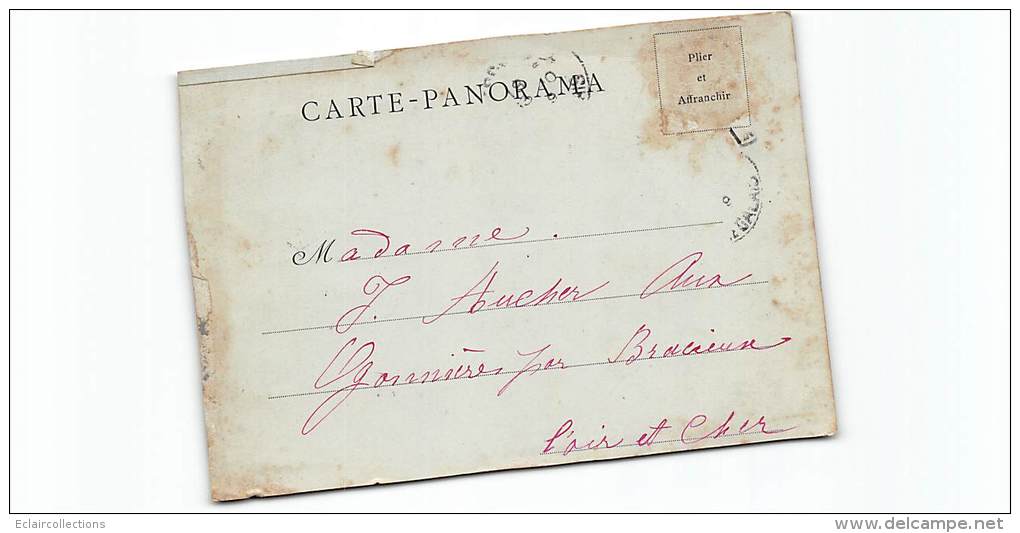 Plier
et
Affranchir
CARTE-PANORAMA
Madame
J. Aucher Aux
par Bracieux
Loir et Cher
Eclaircollections
www.delcampe.net